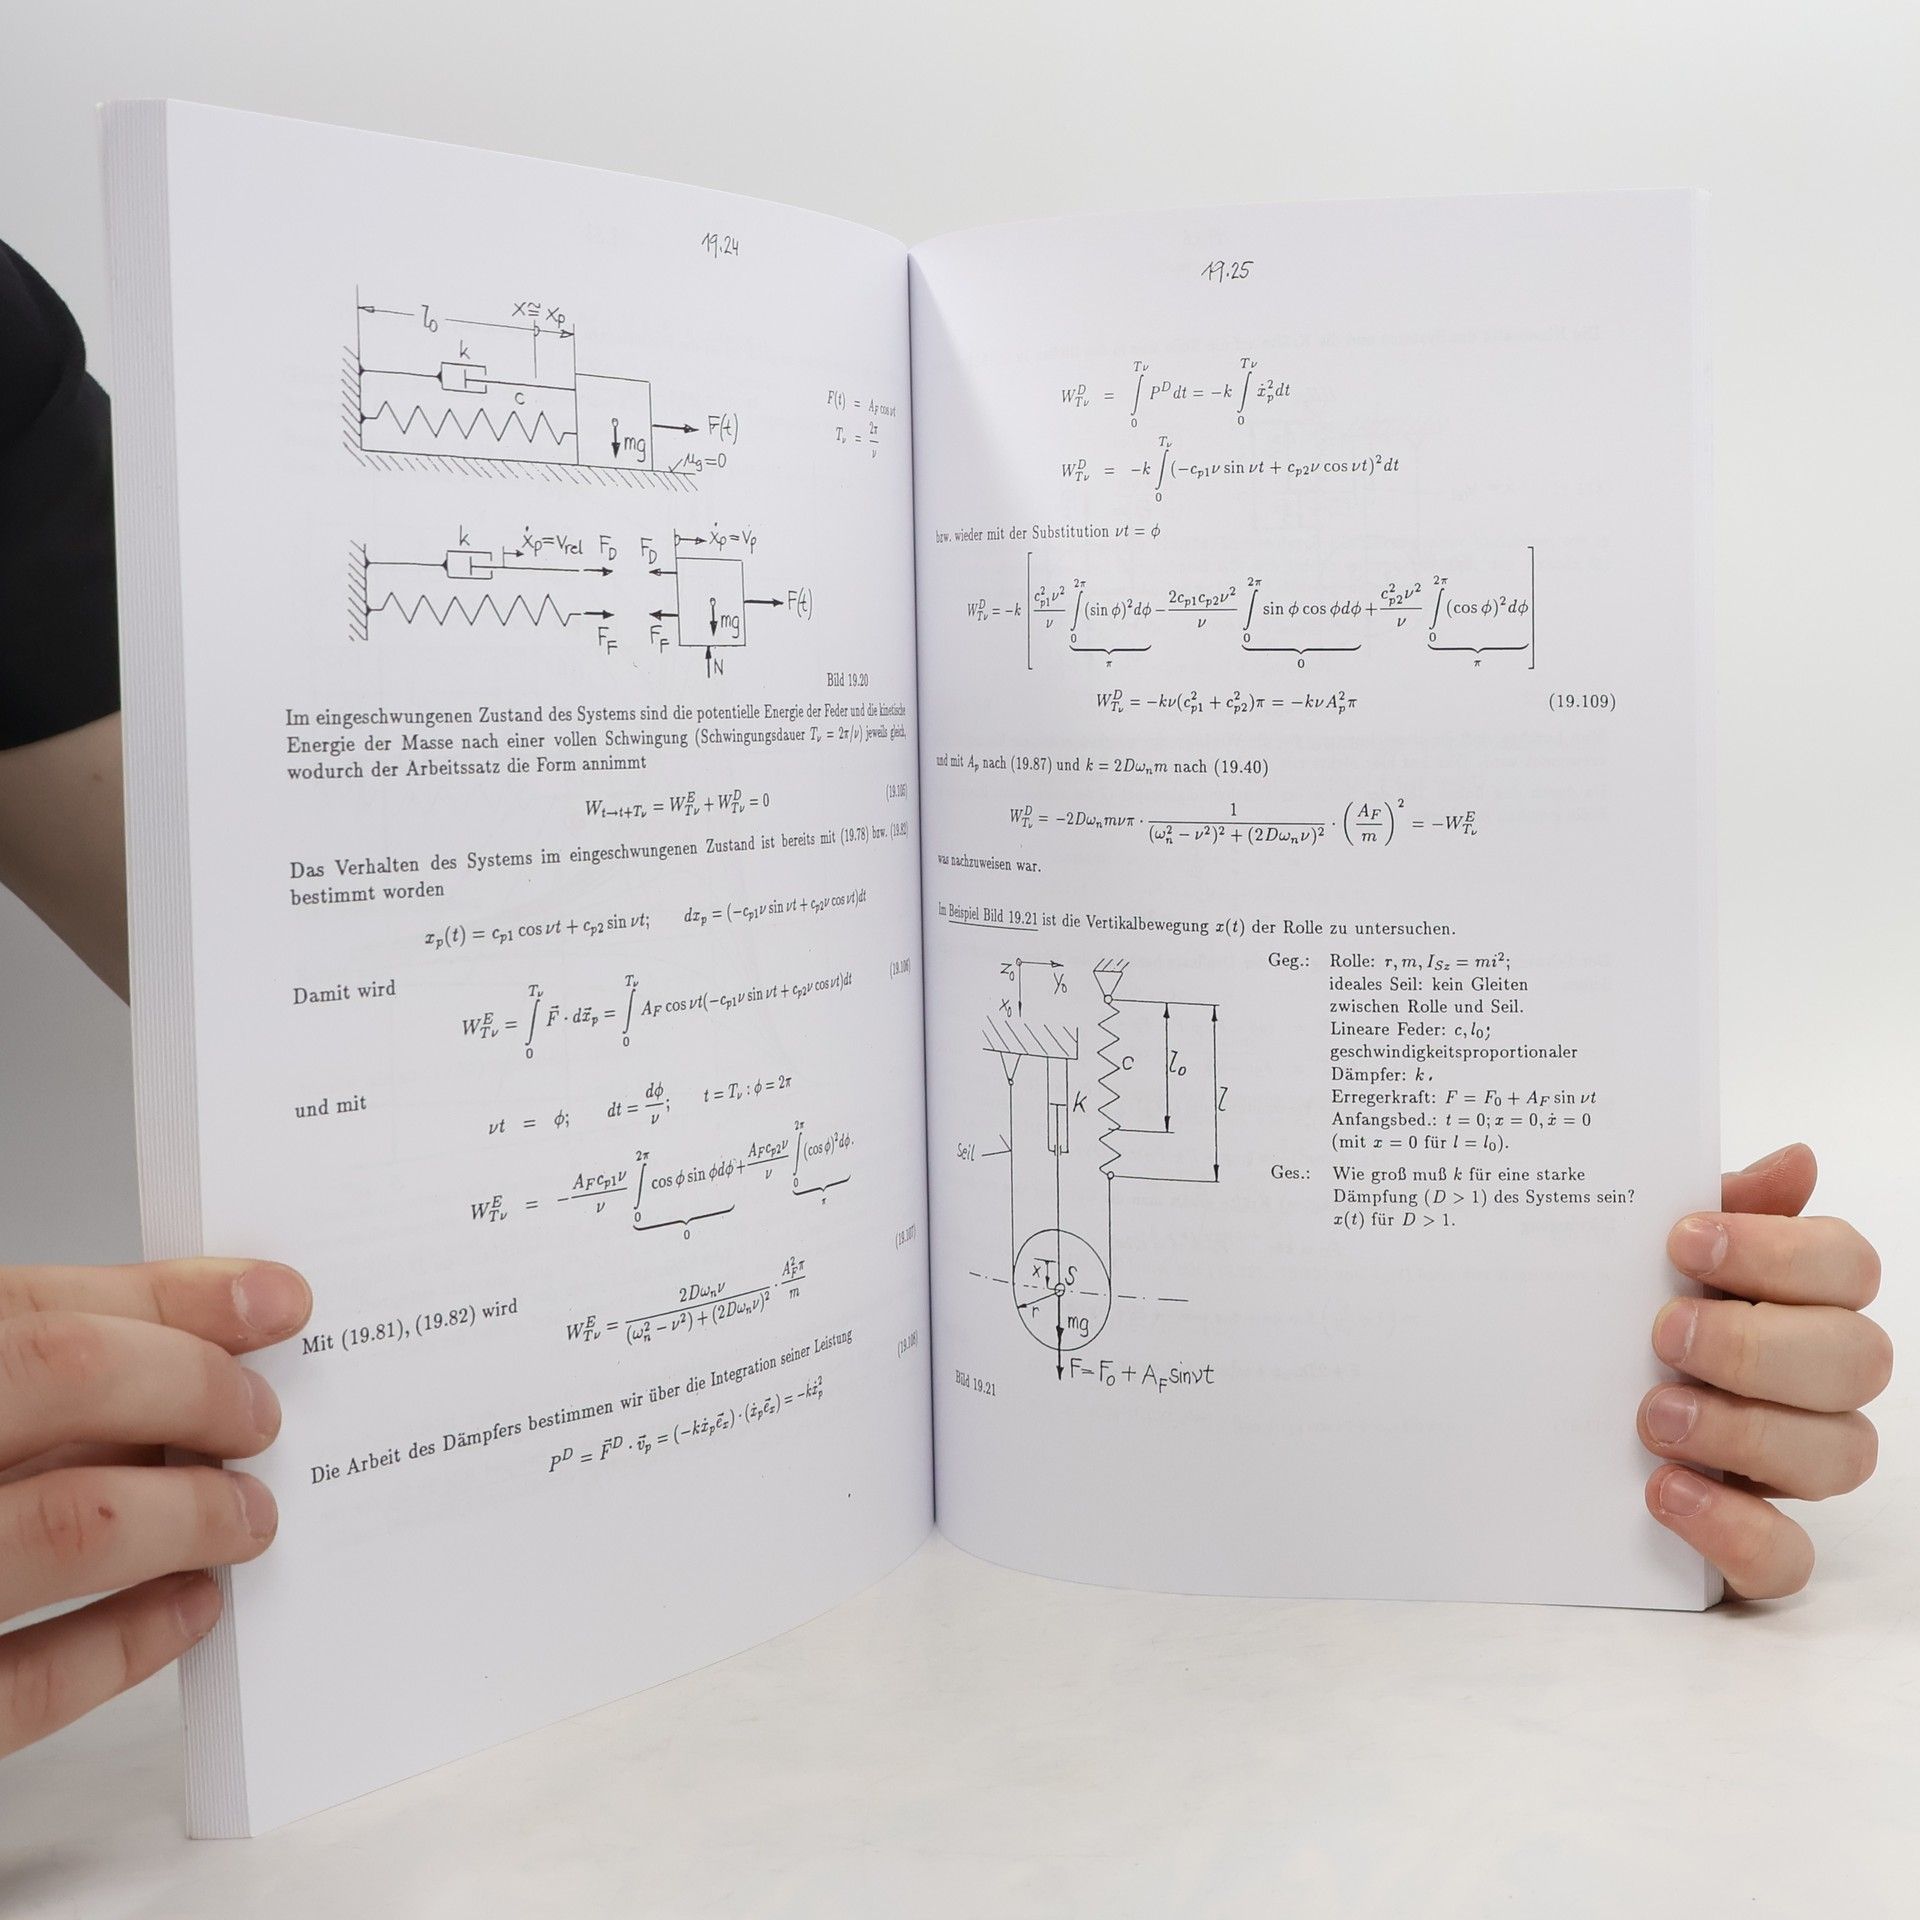 19.24
l₀
x ≅ x_p
k
c
mg
F(t)
μ_g=0
F(t) = A_F cos νt
T_ν = 2π/ν
k
ẋ_p=v_rel
F_D
F_D
ẋ_p=v_p
F(t)
mg
F_F
F_F
N
Bild 19.20
Im eingeschwungenen Zustand des Systems sind die potentielle Energie der Feder und die kinetische
Energie der Masse nach einer vollen Schwingung (Schwingungsdauer T_ν = 2π/ν) jeweils gleich,
wodurch der Arbeitssatz die Form annimmt
W_{t→t+T_ν} = W^E_{Tν} + W^D_{Tν} = 0 (19.105)
Das Verhalten des Systems im eingeschwungenen Zustand ist bereits mit (19.78) bzw. (19.82)
bestimmt worden
x_p(t) = c_{p1} cos νt + c_{p2} sin νt; dx_p = (−c_{p1}ν sin νt + c_{p2}ν cos νt)dt
(19.106)
Damit wird
W^E_{Tν} = ∫_0^{Tν} F⃗ · dx⃗_p = ∫_0^{Tν} A_F cos νt(−c_{p1}ν sin νt + c_{p2}ν cos νt)dt
und mit
νt = φ; dt = dφ/ν; t = T_ν : φ = 2π
W^E_{Tν} = −(A_F c_{p1}ν)/ν ∫_0^{2π} cos φ sin φdφ + (A_F c_{p2}ν)/ν ∫_0^{2π} (cos φ)²dφ.
0 π
(19.107)
Mit (19.81), (19.82) wird
W^E_{Tν} = 2Dω_nν / ((ω_n² − ν²) + (2Dω_nν)²) · A_F²π/m
(19.108)
Die Arbeit des Dämpfers bestimmen wir über die Integration seiner Leistung
P^D = F⃗^D · v⃗_p = (−kẋ_p e⃗_x) · (ẋ_p e⃗_x) = −kẋ_p²
19.25
W^D_{Tν} = ∫_0^{Tν} P^D dt = −k ∫_0^{Tν} ẋ_p² dt
W^D_{Tν} = −k ∫_0^{Tν} (−c_{p1}ν sin νt + c_{p2}ν cos νt)² dt
bzw. wieder mit der Substitution νt = φ
W^D_{Tν} = −k [ (c²_{p1}ν²)/ν ∫_0^{2π} (sin φ)²dφ − (2c_{p1}c_{p2}ν²)/ν ∫_0^{2π} sin φ cos φdφ + (c²_{p2}ν²)/ν ∫_0^{2π} (cos φ)²dφ ]
π 0 π
W^D_{Tν} = −kν(c²_{p1} + c²_{p2})π = −kνA_p²π (19.109)
und mit A_p nach (19.87) und k = 2Dω_nm nach (19.40)
W^D_{Tν} = −2Dω_nmνπ · 1/((ω_n² − ν²)² + (2Dω_nν)²) · (A_F/m)² = −W^E_{Tν}
was nachzuweisen war.
Im Beispiel Bild 19.21 ist die Vertikalbewegung x(t) der Rolle zu untersuchen.
z₀
y₀
x₀
c
l₀
l
k
Seil
x
S
r
mg
F=F₀ + A_F sinνt
Bild 19.21
Geg.: Rolle: r, m, I_{Sz} = mi²;
ideales Seil: kein Gleiten
zwischen Rolle und Seil.
Lineare Feder: c, l₀;
geschwindigkeitsproportionaler
Dämpfer: k.
Erregerkraft: F = F₀ + A_F sin νt
Anfangsbed.: t = 0; x = 0, ẋ = 0
(mit x = 0 für l = l₀).
Ges.: Wie groß muß k für eine starke
Dämpfung (D > 1) des Systems sein?
x(t) für D > 1.